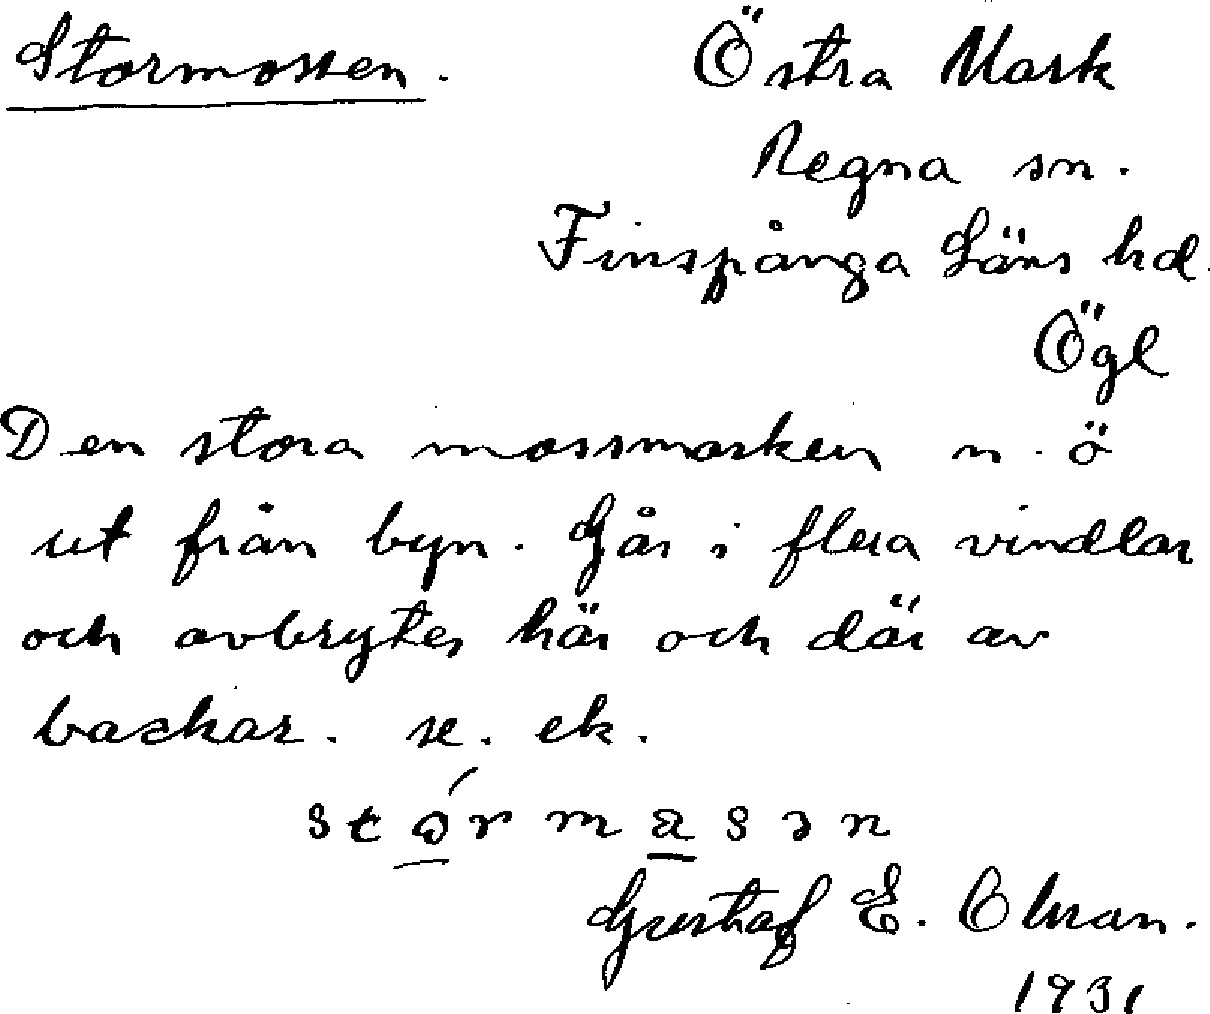 Stormossen. Östra Mark
Regna sn.
Finspånga Läns hd.
Ögl
Den stora mossmarken n. ö
ut från byn. Går i flera vindlar
och avbrytes här och där av
backar. se. ek.
Gustaf E.
1931